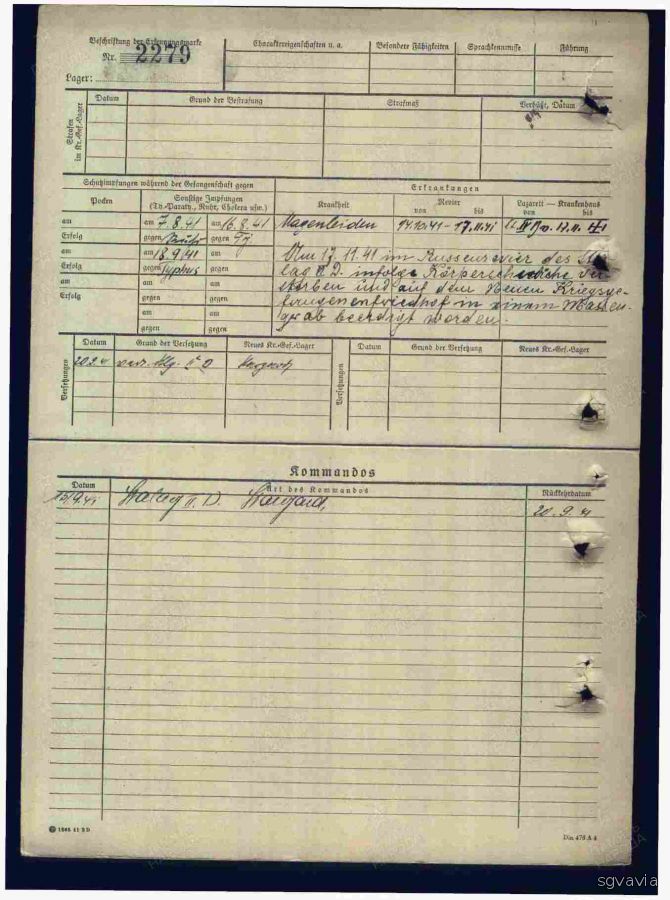 Beschriftung der Erkennungsmarke
Nr. 2279
Lager:
Charaktereigenschaften u. a.
Besondere Fähigkeiten
Sprachkenntnisse
Führung
Strafen im Kr.-Gef.-Lager
Datum
Grund der Bestrafung
Strafmaß
Verbüßt, Datum
Schutzimpfungen während der Gefangenschaft gegen
Erkrankungen
Pocken
Sonstige Impfungen
(Ty.-Paraty., Ruhr, Cholera usw.)
Krankheit
Revier
von bis
Lazarett — Krankenhaus
von bis
am
am 7.8.41
am 16.8.41
Magenleiden
14.10.41 - 17.11.41
Erfolg
gegen Ruhr
gegen Ty
am
am 18.9.41
am
Am 17.11.41 im Russenrevier des Sta-
Erfolg
gegen Typhus
gegen
lag II D. infolge Körperschwäche ver-
am
am
am
storben und auf dem Neuen Kriegsge-
Erfolg
gegen
gegen
fangenenfriedhof in einem Massen-
am
am
grab beerdigt worden.
gegen
gegen
Versetzungen
Datum
Grund der Versetzung
Neues Kr.-Gef.-Lager
Versetzungen
Datum
Grund der Versetzung
Neues Kr.-Gef.-Lager
Kommandos
Datum
Art des Kommandos
Rückkehrdatum
15/9.41
Stalag II. D. Stargard,
20. 9. 41
1565 41 2 D
Din 476 A 4
sgvavia